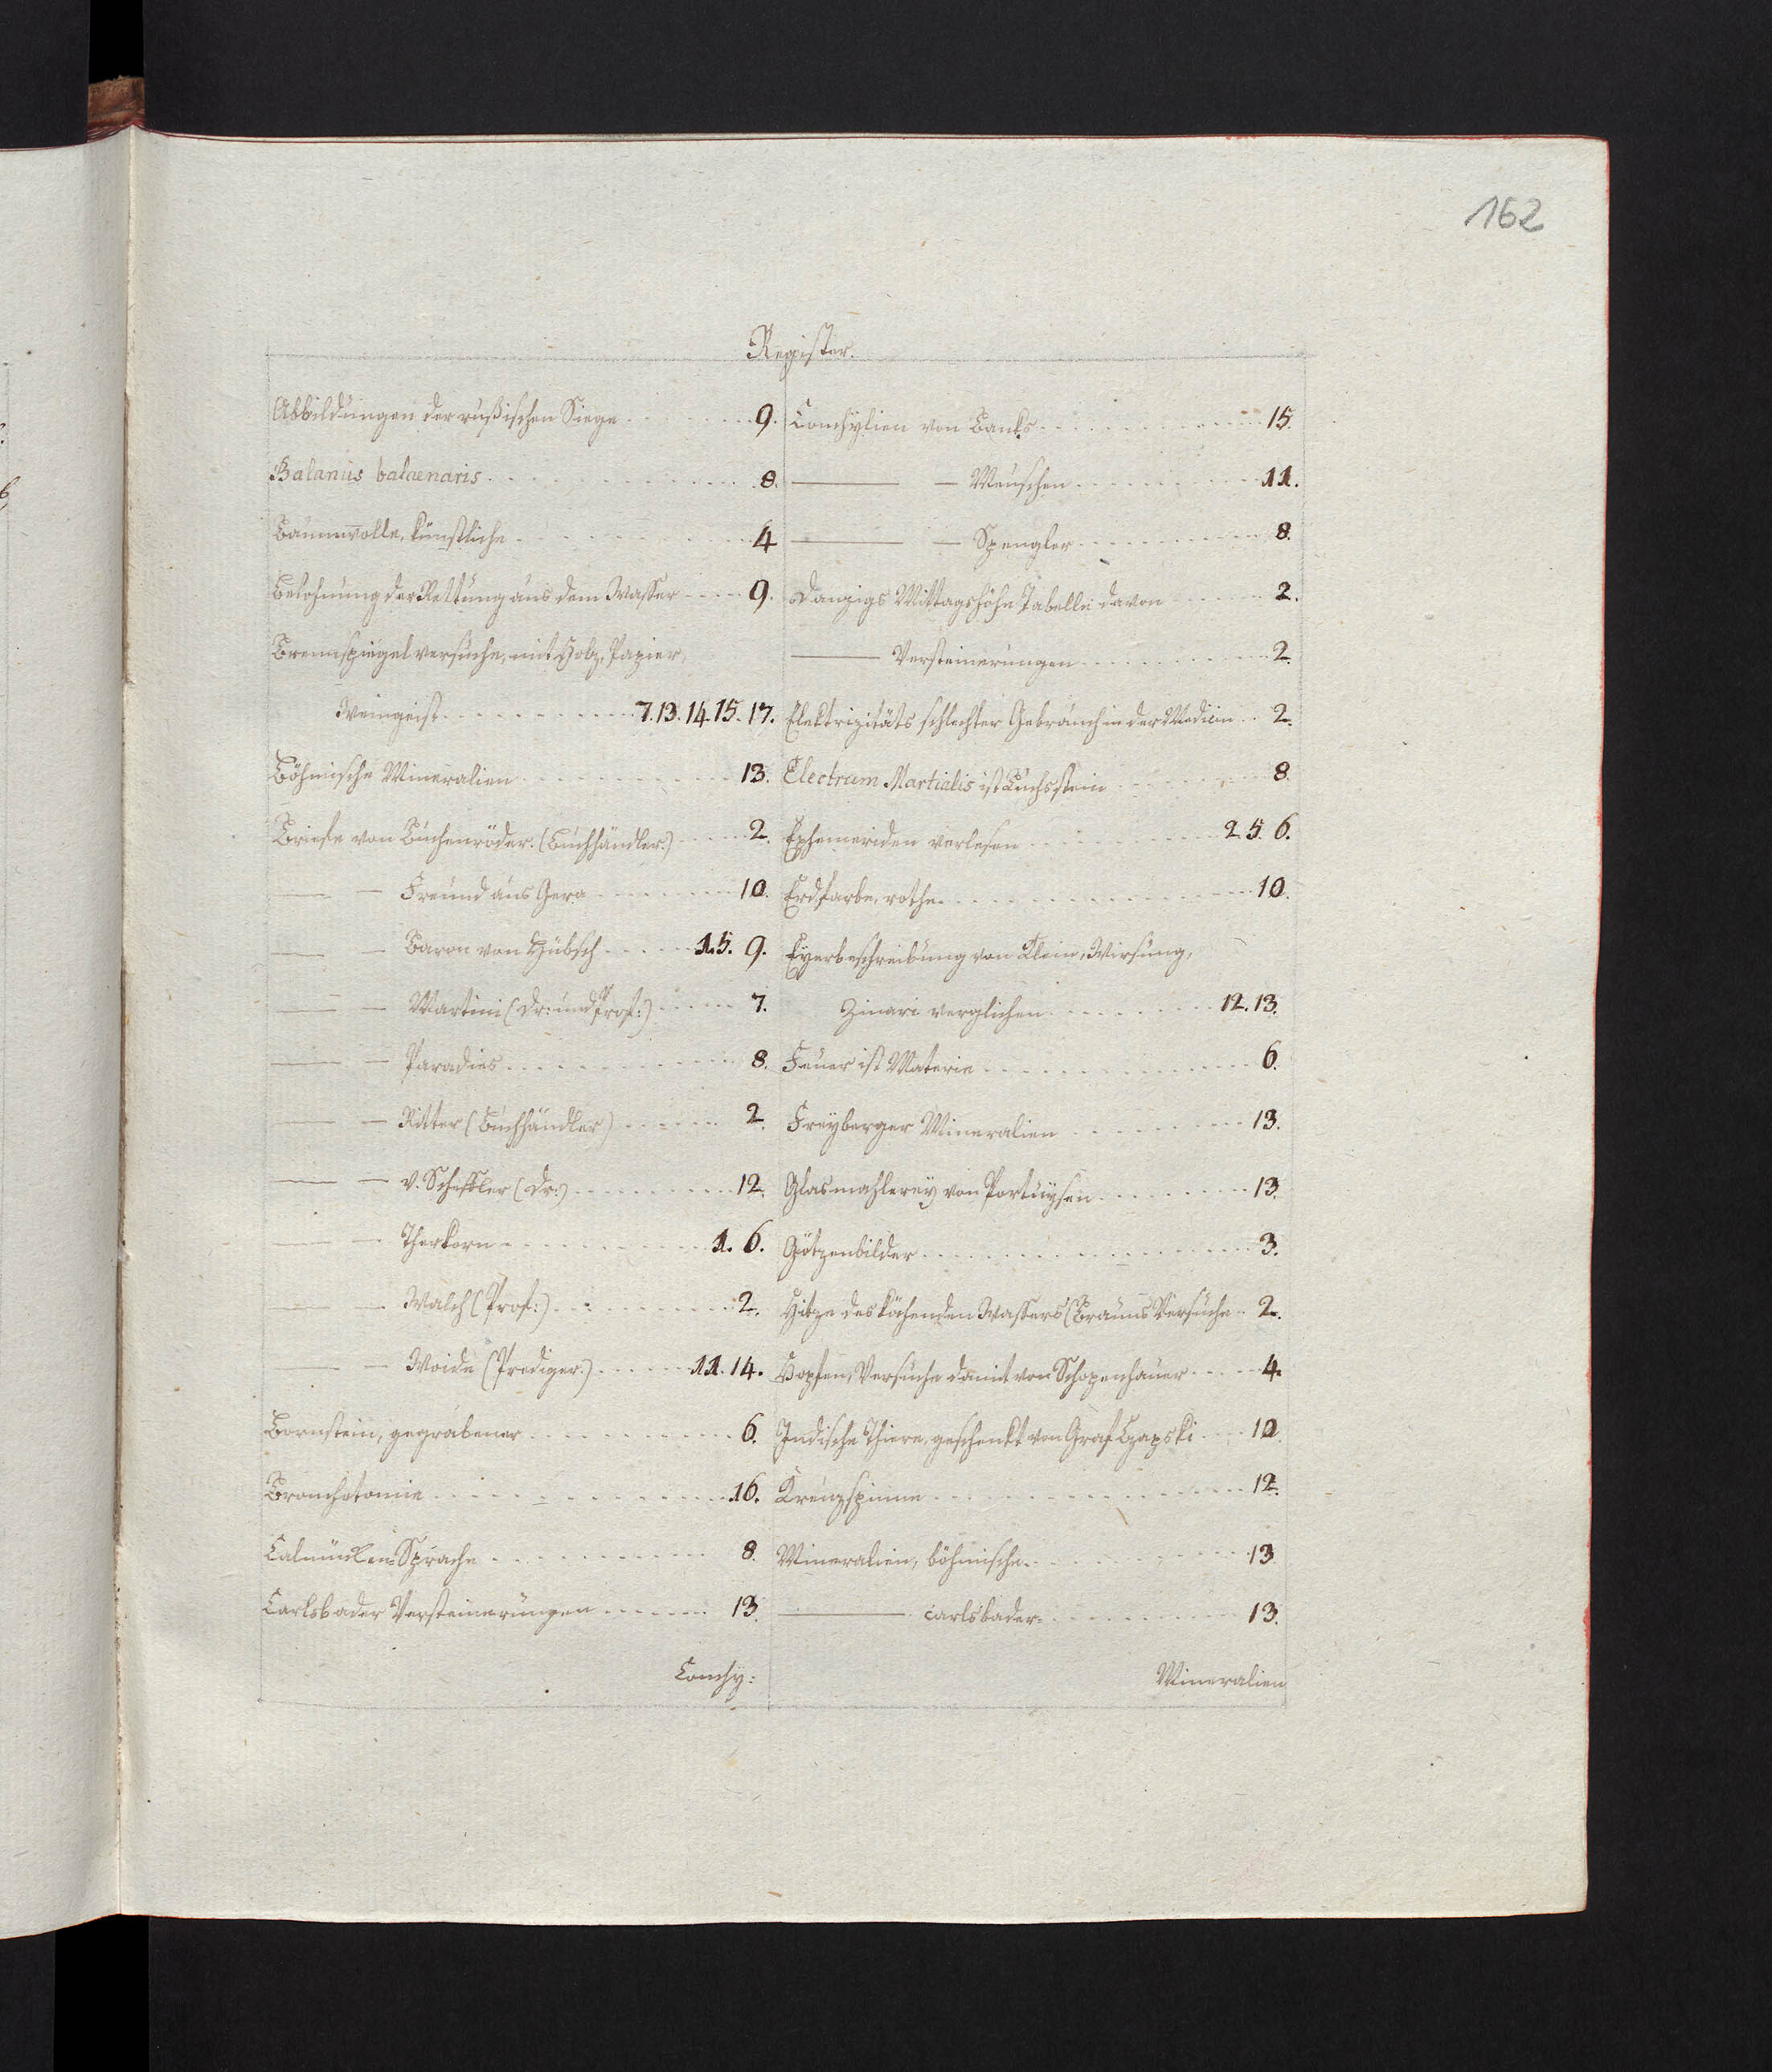 162
Register.
Abbildungen der rußischen Siege . . . . . . 9.
Balanus balaenaris . . . . . . 8.
Baumwolle, künstliche . . . . . . 4
Belohnung der Rettung aus dem Wasser . . . . 9.
Brennspiegel versuche, mit Holz, Papier,
Weingeist . . . . . . 7. 13. 14. 15. 17.
Böhmische Mineralien . . . . . . 13.
Briefe von Buchenröder. (Buchhändler.) . . . . 2.
— — Freund aus Gera . . . . . . 10.
— — Baron von Hübsch . . . . 1. 5. 9.
— — Martini (Dr: und Prof:) . . . . 7.
— — Paradies . . . . . . 8.
— — Ritter (Buchhändler) . . . . . . 2.
— — v. Scheffler (Dr:) . . . . . . 12.
— — Therkorn . . . . . . 1. 6.
— — Walch (Prof:) . . . . . . 2.
— — Woide (Prediger.) . . . . . . 11. 14.
Bernstein, gegrabener . . . . . . 6.
Bronchotomie . . . . . . 16.
Calmücken=Sprache . . . . . . 8.
Carlsbader Versteinerungen . . . . . . 13.
Conchy:
Conchylien von Banks . . . . . . 15.
— — Meuschen . . . . . . 11.
— — Spengler . . . . . . 8.
Danzigs Mittagshöhe Tabelle davon . . . . 2.
— Versteinerungen . . . . . . 2.
Elektrizitäts schlechter Gebrauch in der Medicin . . 2.
Electrum Martialis ist Luchsstein . . . . . . 8.
Ephemeriden verlesen . . . . . . 2. 5. 6.
Erdfarbe, rothe . . . . . . 10.
Eyerbeschreibung von Klein, Wirsung,
Zinari verglichen . . . . . . 12. 13.
Feuer ist Materie . . . . . . 6.
Freyberger Mineralien . . . . . . 13.
Glasmahlerey von Portuysen . . . . . . 13.
Götzenbilder . . . . . . 3.
Hitze des kochenden Wassers (Brauns Versuche . . 2.
Hopfen, Versuche damit von Schopenhauer . . . . 4.
Indische Thiere, geschenkt von Graf Czapski . . . . 10.
Kreuzspinne . . . . . . 12.
Mineralien, böhmische . . . . . . 13.
— carlsbader . . . . . . 13.
Mineralien